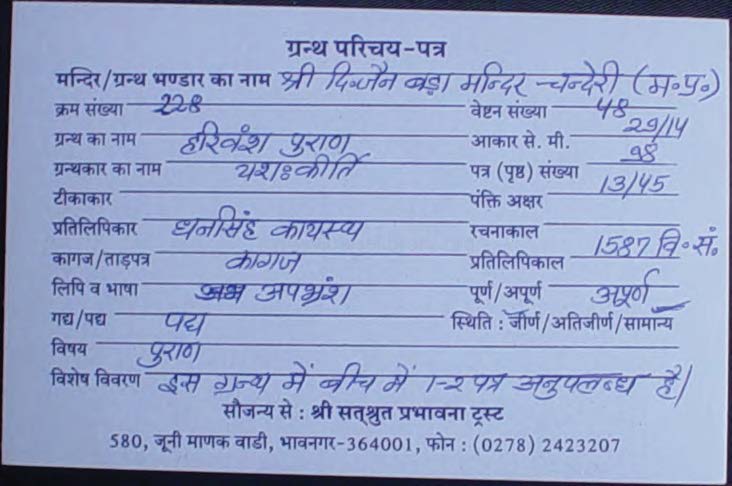 ग्रन्थ परिचय-पत्र
मन्दिर/ग्रन्थ भण्डार का नाम श्री दि.जैन बड़ा मन्दिर चन्देरी (म॰प्र॰)
क्रम संख्या 228 वेष्टन संख्या 48
ग्रन्थ का नाम हरिवंश पुराण आकार से. मी. 29/14
ग्रन्थकार का नाम यशःकीर्ति पत्र (पृष्ठ) संख्या 98
टीकाकार पंक्ति अक्षर 13/45
प्रतिलिपिकार धनसिंह कायस्थ रचनाकाल
कागज/ताड़पत्र कागज प्रतिलिपिकाल 1587 वि॰सं॰
लिपि व भाषा अपभ्रंश पूर्ण/अपूर्ण अपूर्ण
गद्य/पद्य पद्य स्थिति : जीर्ण/अतिजीर्ण/सामान्य
विषय पुराण
विशेष विवरण इस ग्रन्थ में बीच में 1-2 पत्र अनुपलब्ध है।
सौजन्य से : श्री सत्श्रुत प्रभावना ट्रस्ट
580, जूनी माणक वाडी, भावनगर-364001, फोन : (0278) 2423207